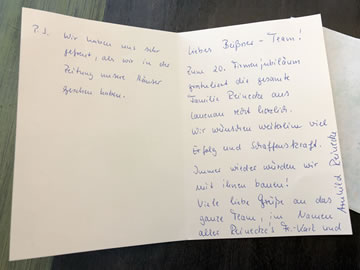 P.S. Wir haben uns sehr
gefreut, als wir in der
Zeitung unsere Häuser
gesehen haben.
Liebes Büßner-Team!
Zum 20. Firmenjubiläum
gratuliert die gesamte
Familie Reinecke aus
Lauenau recht herzlich.
Wir wünschen weiterhin viel
Erfolg und Schaffenskraft.
Immer wieder würden wir
mit ihnen bauen!
Viele liebe Grüße an das
ganze Team, im Namen
aller Reinecke's Fr.-Karl und
Reinecke